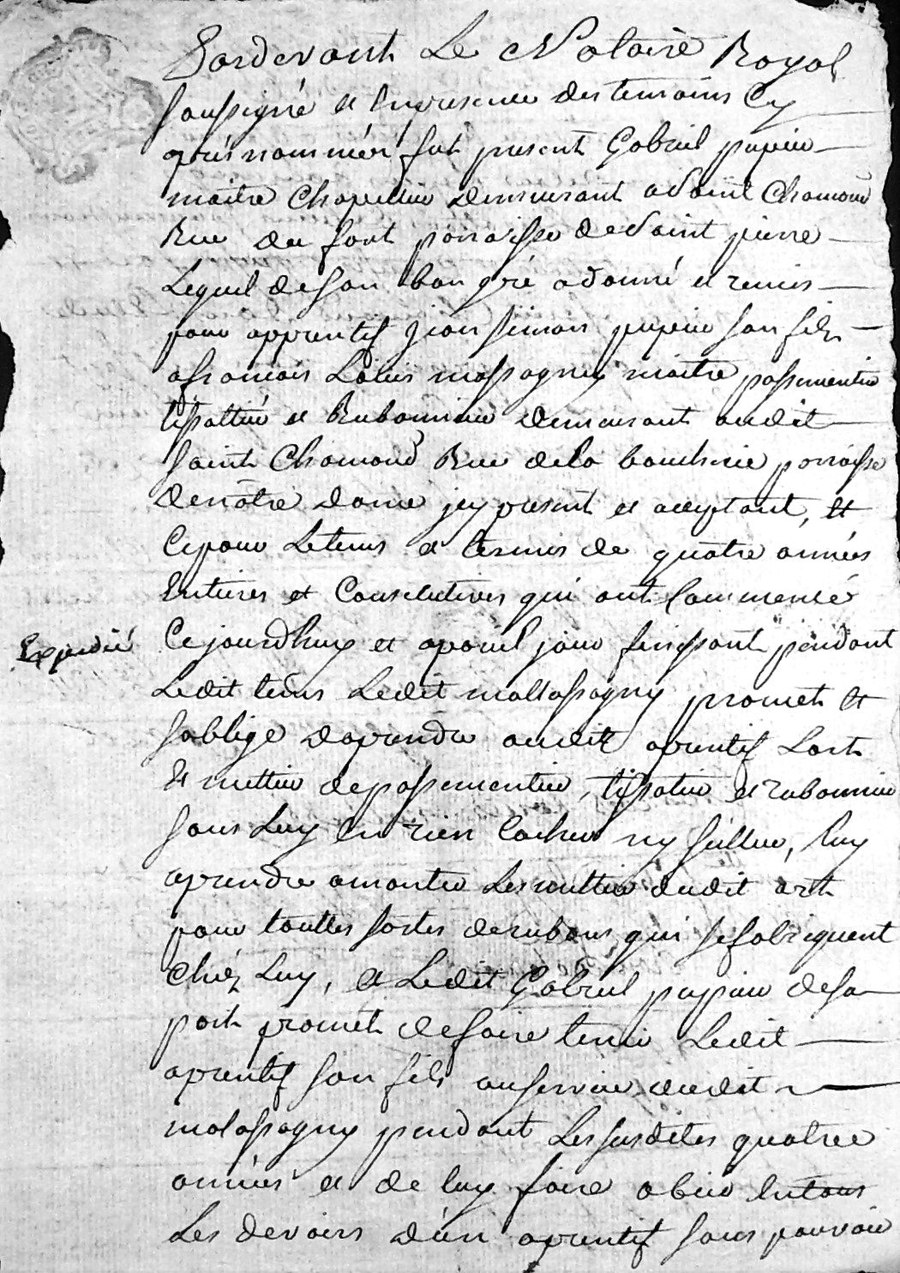 Pardevant Le Notaire Royal
soussigné et En presence des temoins Cy
après nommés fut present Gabriel papier
maitre Chapellier demeurant a Saint Chamond
Rue du fort parroisse de Saint pierre
Lequel de son bon gré a donné et remis
pour apprentif jean simon papier son fils
a francois Louis massagny maitre passementier
tissottier et Rubannier demeurant audit
Saint Chamond Rue de la boucherie parroisse
de nôtre dame jcy present et acceptant, Et
Ce pour Le tems et termes de quatre années
Entieres et Consecutives qui ont Commencé
Expedié
Ce jourdhuy et a pareil jour finissant pendant
Ledit tems Ledit mallassagny promet et
soblige daprendre audit aprentif Lart
Et mettier de passementier, tissotier et rubannier
sans Luy En rien Cacher ny seller, Luy
aprendre a monter Les mettier dudit art
pour touttes sortes de rubans qui se fabriquent
Chéz Luy, et Ledit Gabriel papier de sa
part promet de faire tenir Ledit
aprentif son fils au service dudit
malassagny pendant Les susdites quatre
années et de luy faire obeir En tous
Les devoirs d'un aprentif sans pouvoir